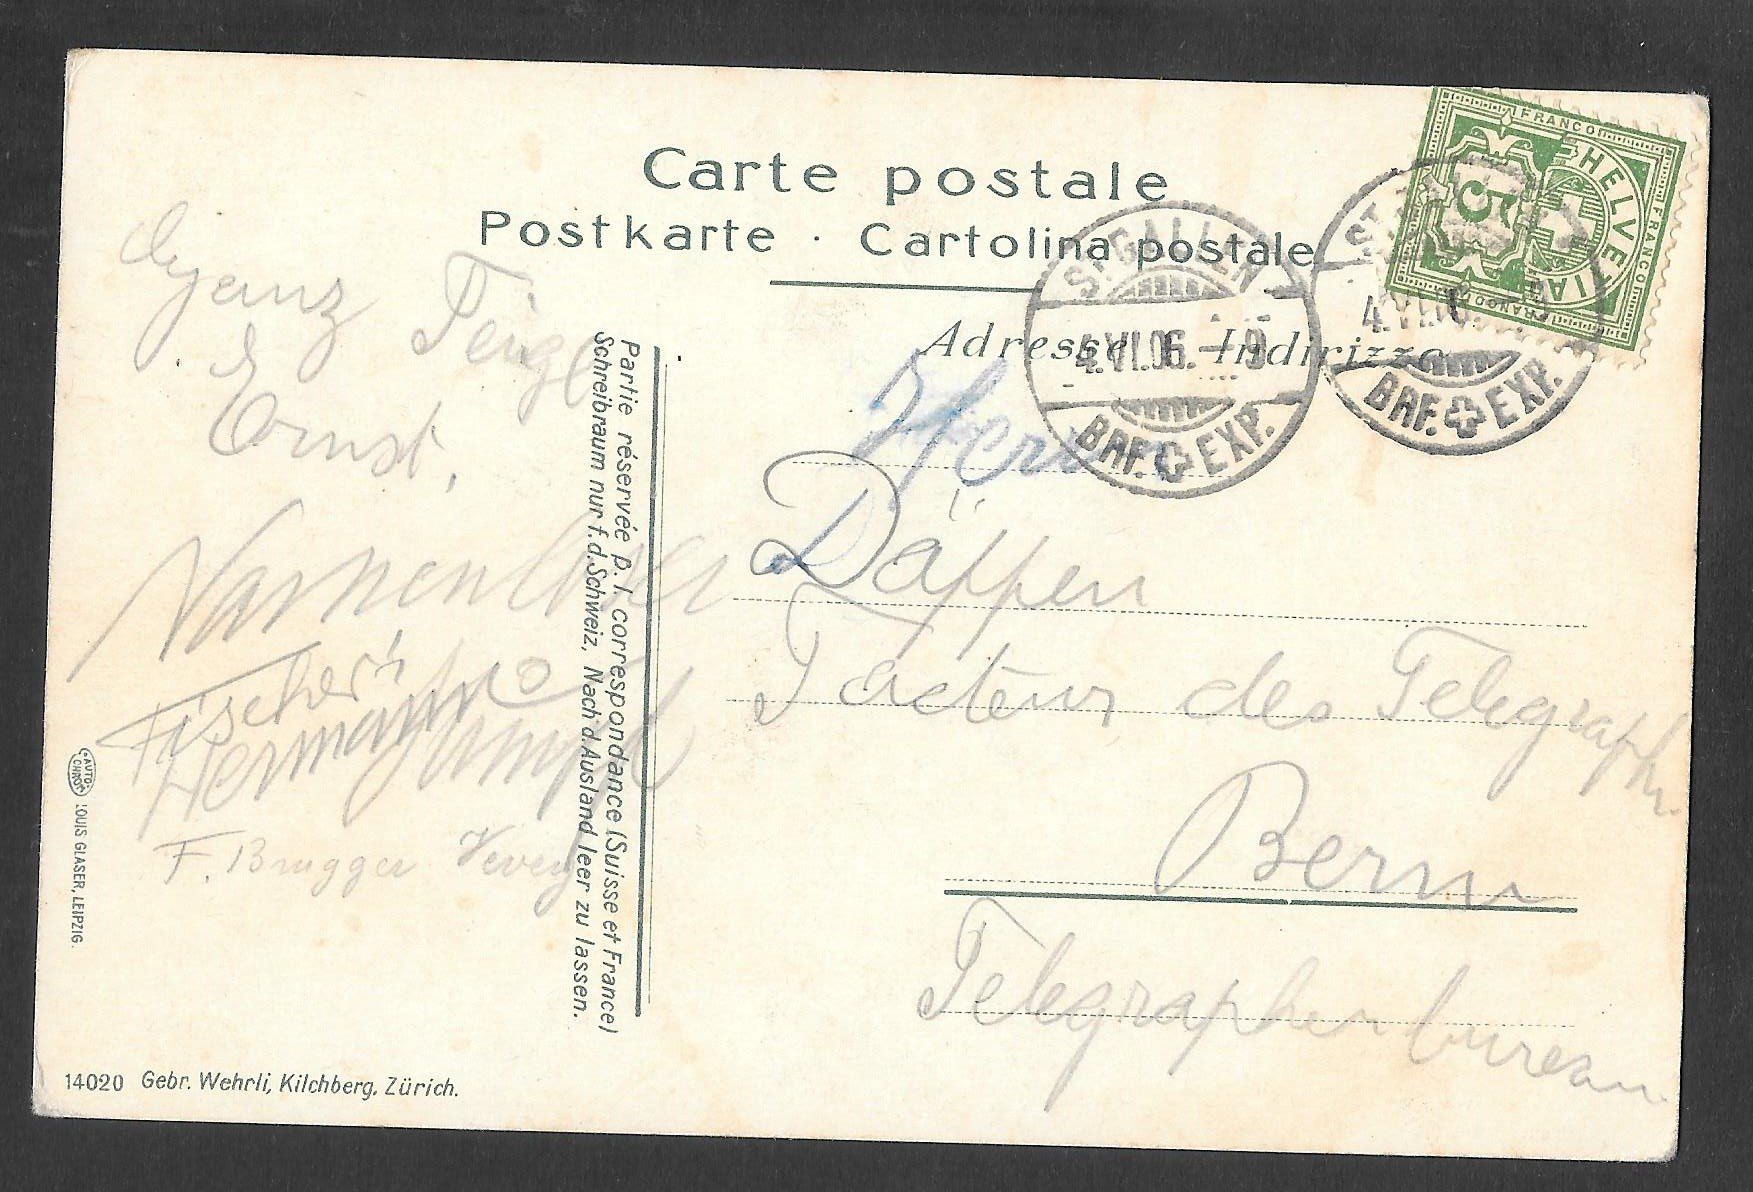 Carte postale
Postkarte · Cartolina postale
Adresse Indirizzo
FRANCO
HELVETIA
5
FRANCO
ST. GALLEN
4.VI.06.–9
BRF. EXP.
ST.
4.VI.
BRF. EXP.
Herr
Däppen
Facteur des Telegraphe
Bern
Telegraphenbureau
Ernst.
Fischer
Hermann
F. Brugger Vevey
Partie réservée p. l. correspondance (Suisse et France)
Schreibraum nur f. d. Schweiz, Nach d. Ausland leer zu lassen.
AUTO-CHROM
LOUIS GLASER, LEIPZIG.
14020 Gebr. Wehrli, Kilchberg, Zürich.